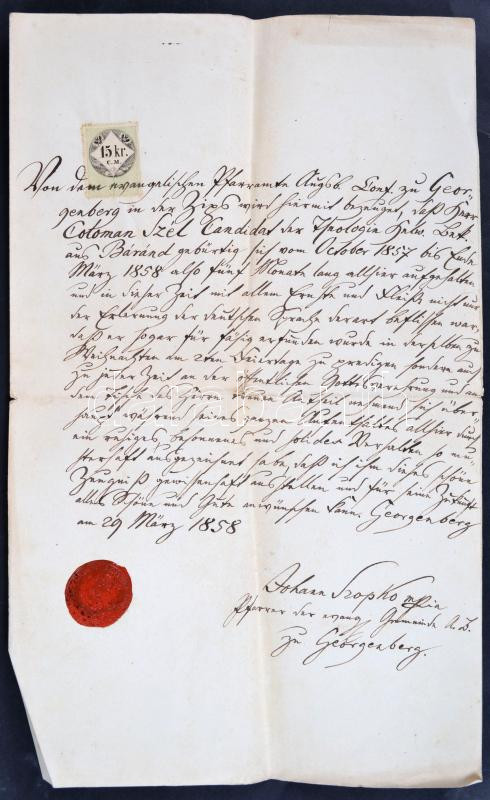 15 kr.
C.M.
Von dem evangelischen Pfarramte Augsb. Conf. zu Geor-
genberg in der Zips wird hiermit bezeuget, daß Herr
Coloman Szél Candidat der Theologie Helv. Bek.
aus Báránd gebürtig sich vom October 1857 bis Ende
März 1858 also fünf Monate lang allhier aufgehalten
und in dieser Zeit mit allem Ernste und Fleiße nicht nur
der Erlernung der deutschen Sprache derart beflissen war,
daß er sogar für fähig erfunden wurde in derselben zu
Weihnachten am 2ten Feiertage zu predigen sondern auch
zu jeder Zeit an der öffentlichen Gottesverehrung und an
dem Tische des Herrn Antheil nehmend sich über-
haupt während seines ganzen Aufenthaltes allhier durch
ein ruhiges besonnenes und solides Verhalten so mu-
sterhaft ausgezeichnet habe, daß ich ihm dieses schöne
Zeugniß gewissenhaft ausstellen und für seine Zukunft
alles Schöne und Gute anwünschen kann. Georgenberg
am 29 März 1858
Johann
Pfarrer der evang. Gemeinde A. B.
zu Georgenberg.
darabanth